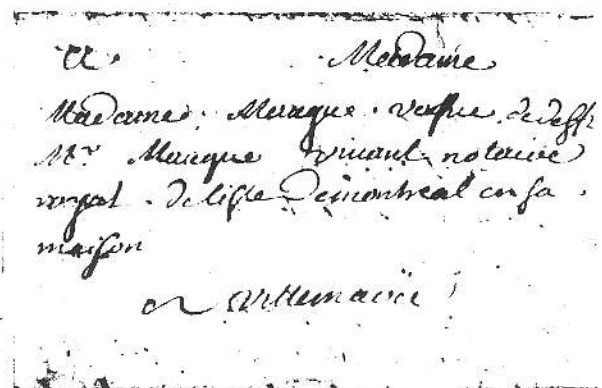 A Madame
Madame Maugue vefve de deff
Mr Maugue vivant notaire
royal de lisle de montreal en sa
maison
a villemarie